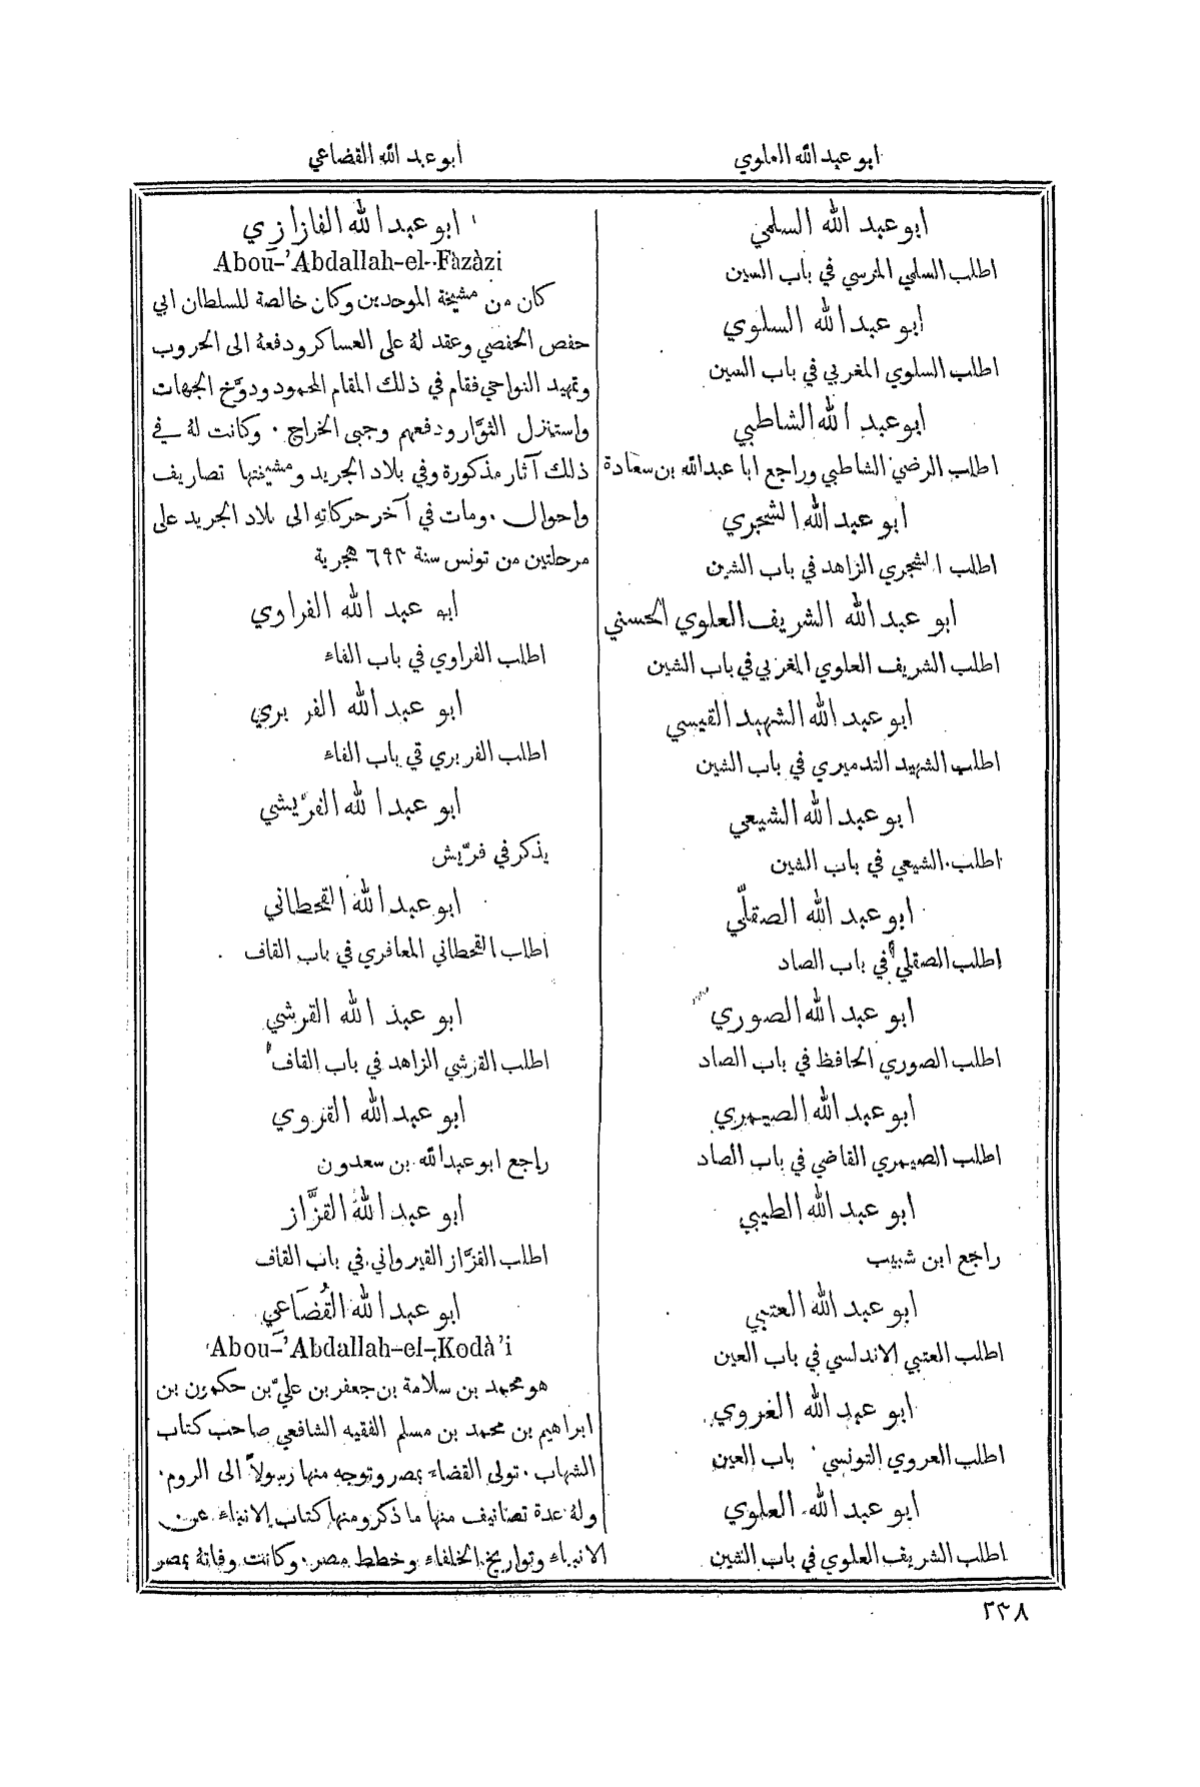 ابو عبد الله العلوي
ابو عبد الله القضاعي
ابو عبد الله السلمي
اطلب السلمي المرسي في باب السين
ابو عبد الله السلوي
اطلب السلوي المغربي في باب السين
ابو عبد الله الشاطبي
اطلب الرضي الشاطبي وراجع ابا عبد الله بن سعادة
ابو عبد الله الشجري
اطلب الشجري الزاهد في باب الشين
ابو عبد الله الشريف العلوي الحسني
اطلب الشريف العلوي المغربي في باب الشين
ابو عبد الله الشهيد القيسي
اطلب الشهيد التدميري في باب الشين
ابو عبد الله الشيعي
اطلب الشيعي في باب الشين
ابو عبد الله الصقلّي
اطلب الصقلي في باب الصاد
ابو عبد الله الصوري
اطلب الصوري الحافظ في باب الصاد
ابو عبد الله الصيمري
اطلب الصيمري القاضي في باب الصاد
ابو عبد الله الطيبي
راجع ابن شبيب
ابو عبد الله العتبي
اطلب العتبي الاندلسي في باب العين
ابو عبد الله الغروي
اطلب العروي التونسي باب العين
ابو عبد الله العلوي
اطلب الشريف العلوي في باب الشين
ابو عبد الله الفازازي
Abou-'Abdallah-el-Fàzàzi
كان من مشيخة الموحدين وكان خالصة للسلطان ابي
حفص الحفصي وعقد لهُ على العساكر ودفعهُ الى الحروب
وتمهيد النواحي فقام في ذلك المقام المحمود ودوَّخ الجهات
واستنزل الثوَّار ودفعهم وجبى الخراج . وكانت لهُ في
ذلك آثار مذكورة وفي بلاد الجريد ومشيختها تصاريف
واحوال . ومات في آخر حركاتهِ الى بلاد الجريد على
مرحلتين من تونس سنة ٦٩٣ هجرية
ابو عبد الله الفراوي
اطلب الفراوي في باب الفاء
ابو عبد الله الفربري
اطلب الفربري في باب الفاء
ابو عبد الله الفرّيشي
يذكر في فرّيش
ابو عبد الله القحطاني
اطلب القحطاني المعافري في باب القاف .
ابو عبد الله القرشي
اطلب القرشي الزاهد في باب القاف
ابو عبد الله القروي
راجع ابو عبد الله بن سعدون
ابو عبد الله القزَّاز
اطلب القزَّاز القيرواني في باب القاف
ابو عبد الله القُضَاعي
Abou-'Abdallah-el-Kodà'i
هو محمد بن سلامة بن جعفر بن عليّ بن حكمون بن
ابراهيم بن محمد بن مسلم الفقيه الشافعي صاحب كتاب
الشهاب . تولى القضاء بمصر وتوجه منها رسولاً الى الروم .
ولهُ عدة تصانيف منها ما ذكر ومنها كتاب الانباء عن
الانبياء وتواريخ الخلفاء وخطط مصر . وكانت وفاتهُ بمصر
٢٣٨